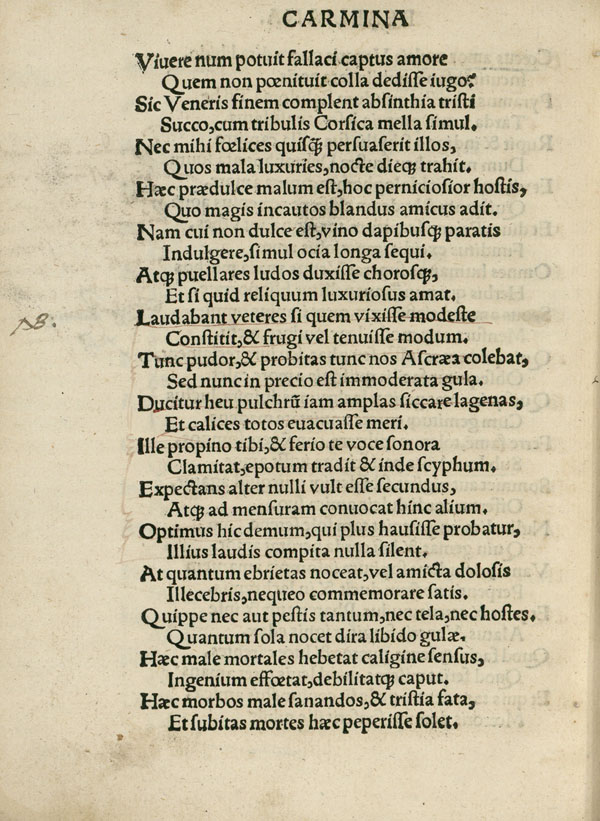 CARMINA
Viuere num potuit fallaci captus amore
Quem non pœnituit colla dedisse iugo?
Sic Veneris finem complent absinthia tristi
Succo, cum tribulis Corsica mella simul.
Nec mihi fœlices quisq̃ persuaserit illos,
Quos mala luxuries, nocte dieq; trahit.
Hæc prædulce malum est, hoc perniciosior hostis,
Quo magis incautos blandus amicus adit.
Nam cui non dulce est, vino dapibusq; paratis
Indulgere, simul ocia longa sequi.
Atq; puellares ludos duxisse chorosq;,
Et si quid reliquum luxuriosus amat.
NB.
Laudabant veteres si quem vixisse modeste
Constitit, & frugi vel tenuisse modum.
Tunc pudor, & probitas tunc nos Ascræa colebat,
Sed nunc in precio est immoderata gula.
Ducitur heu pulchrũ iam amplas siccare lagenas,
Et calices totos euacuasse meri.
Ille propino tibi, & ferio te voce sonora
Clamitat, epotum tradit & inde scyphum.
Expectans alter nulli vult esse secundus,
Atq; ad mensuram conuocat hinc alium.
Optimus hic demum, qui plus hausisse probatur,
Illius laudis compita nulla silent.
At quantum ebrietas noceat, vel amicta dolosis
Illecebris, nequeo commemorare satis.
Quippe nec aut pestis tantum, nec tela, nec hostes.
Quantum sola nocet dira libido gulæ.
Hæc male mortales hebetat caligine sensus,
Ingenium effœtat, debilitatq; caput.
Hæc morbos male sanandos, & tristia fata,
Et subitas mortes hæc peperisse solet.